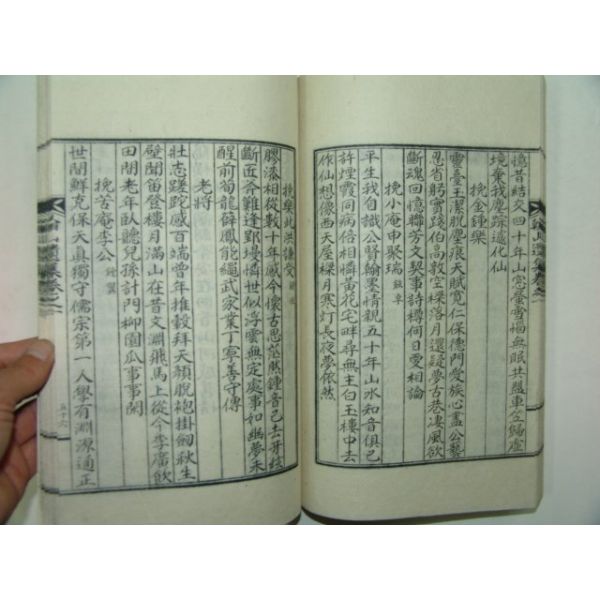 憶昔結交四十年山窓螢雪惜無眠共點車立歸虛
境棄我塵踪遠化仙
挽金鍾樂
靈臺玉潔脫塵浪天賦寬仁保德門受族心盡公藝
忍省躬實踐伯高敦空樑落月還疑夢古巷凄風欲
斷魂回憶聯芳文契事詩樽何日更相論
挽小庵申聚瑞
平生我自識公賢翰墨情親五十年山水知音俱已
許煙霞同病倍相憐黃花宅畔尋無主白玉樓中去
作仙想像西天屋樑月寒灯長夜夢依然
挽樂此洪
膠漆相從數十年感今懷古思茫然鍾音已去牙絃
斷匠斧難逢郢墁憐世似浮雲無定處事如幽夢未
醒前荀龍薛鳳能繩武家業丁寧善守傳
老將
壯志蹉跎感百端曾年推轂拜天顏脫砲掛劒秋生
壁聞笛登樓月滿山在昔文淵飛馬上從今李廣飮
田間老年臥聽兒孫計門柳園瓜事事閑
挽苦庵李公
世間鮮克保天眞獨守儒宗第一人學有淵源適正
五十六